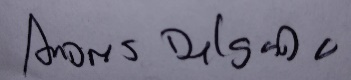 Andres Delgado